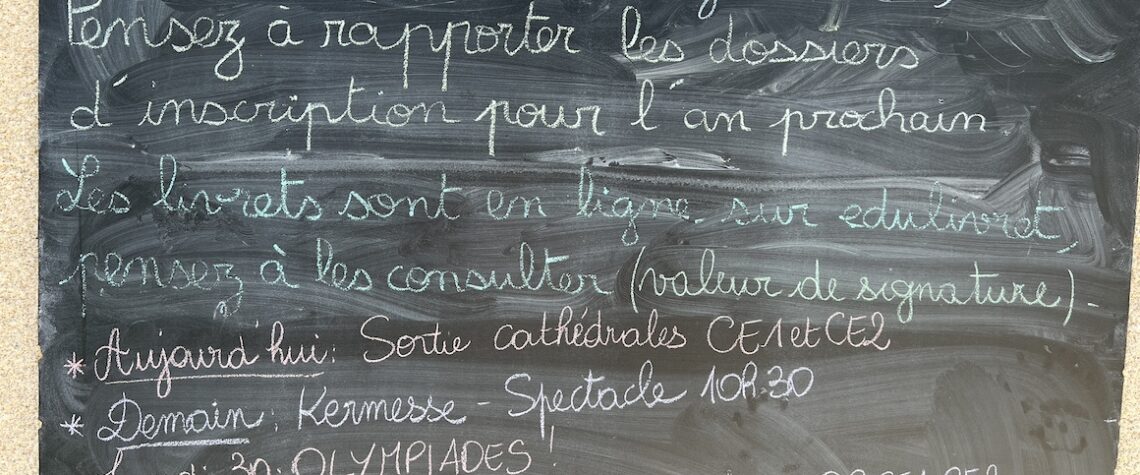 Pensez à rapporter les dossiers
d'inscription pour l'an prochain
Les livrets sont en ligne sur edulivret,
pensez à les consulter (valeur de signature).
* Aujourd'hui: Sortie cathédrales CE1 et CE2
* Demain: Kermesse - Spectacle 10h30
30: OLYMPIADES!